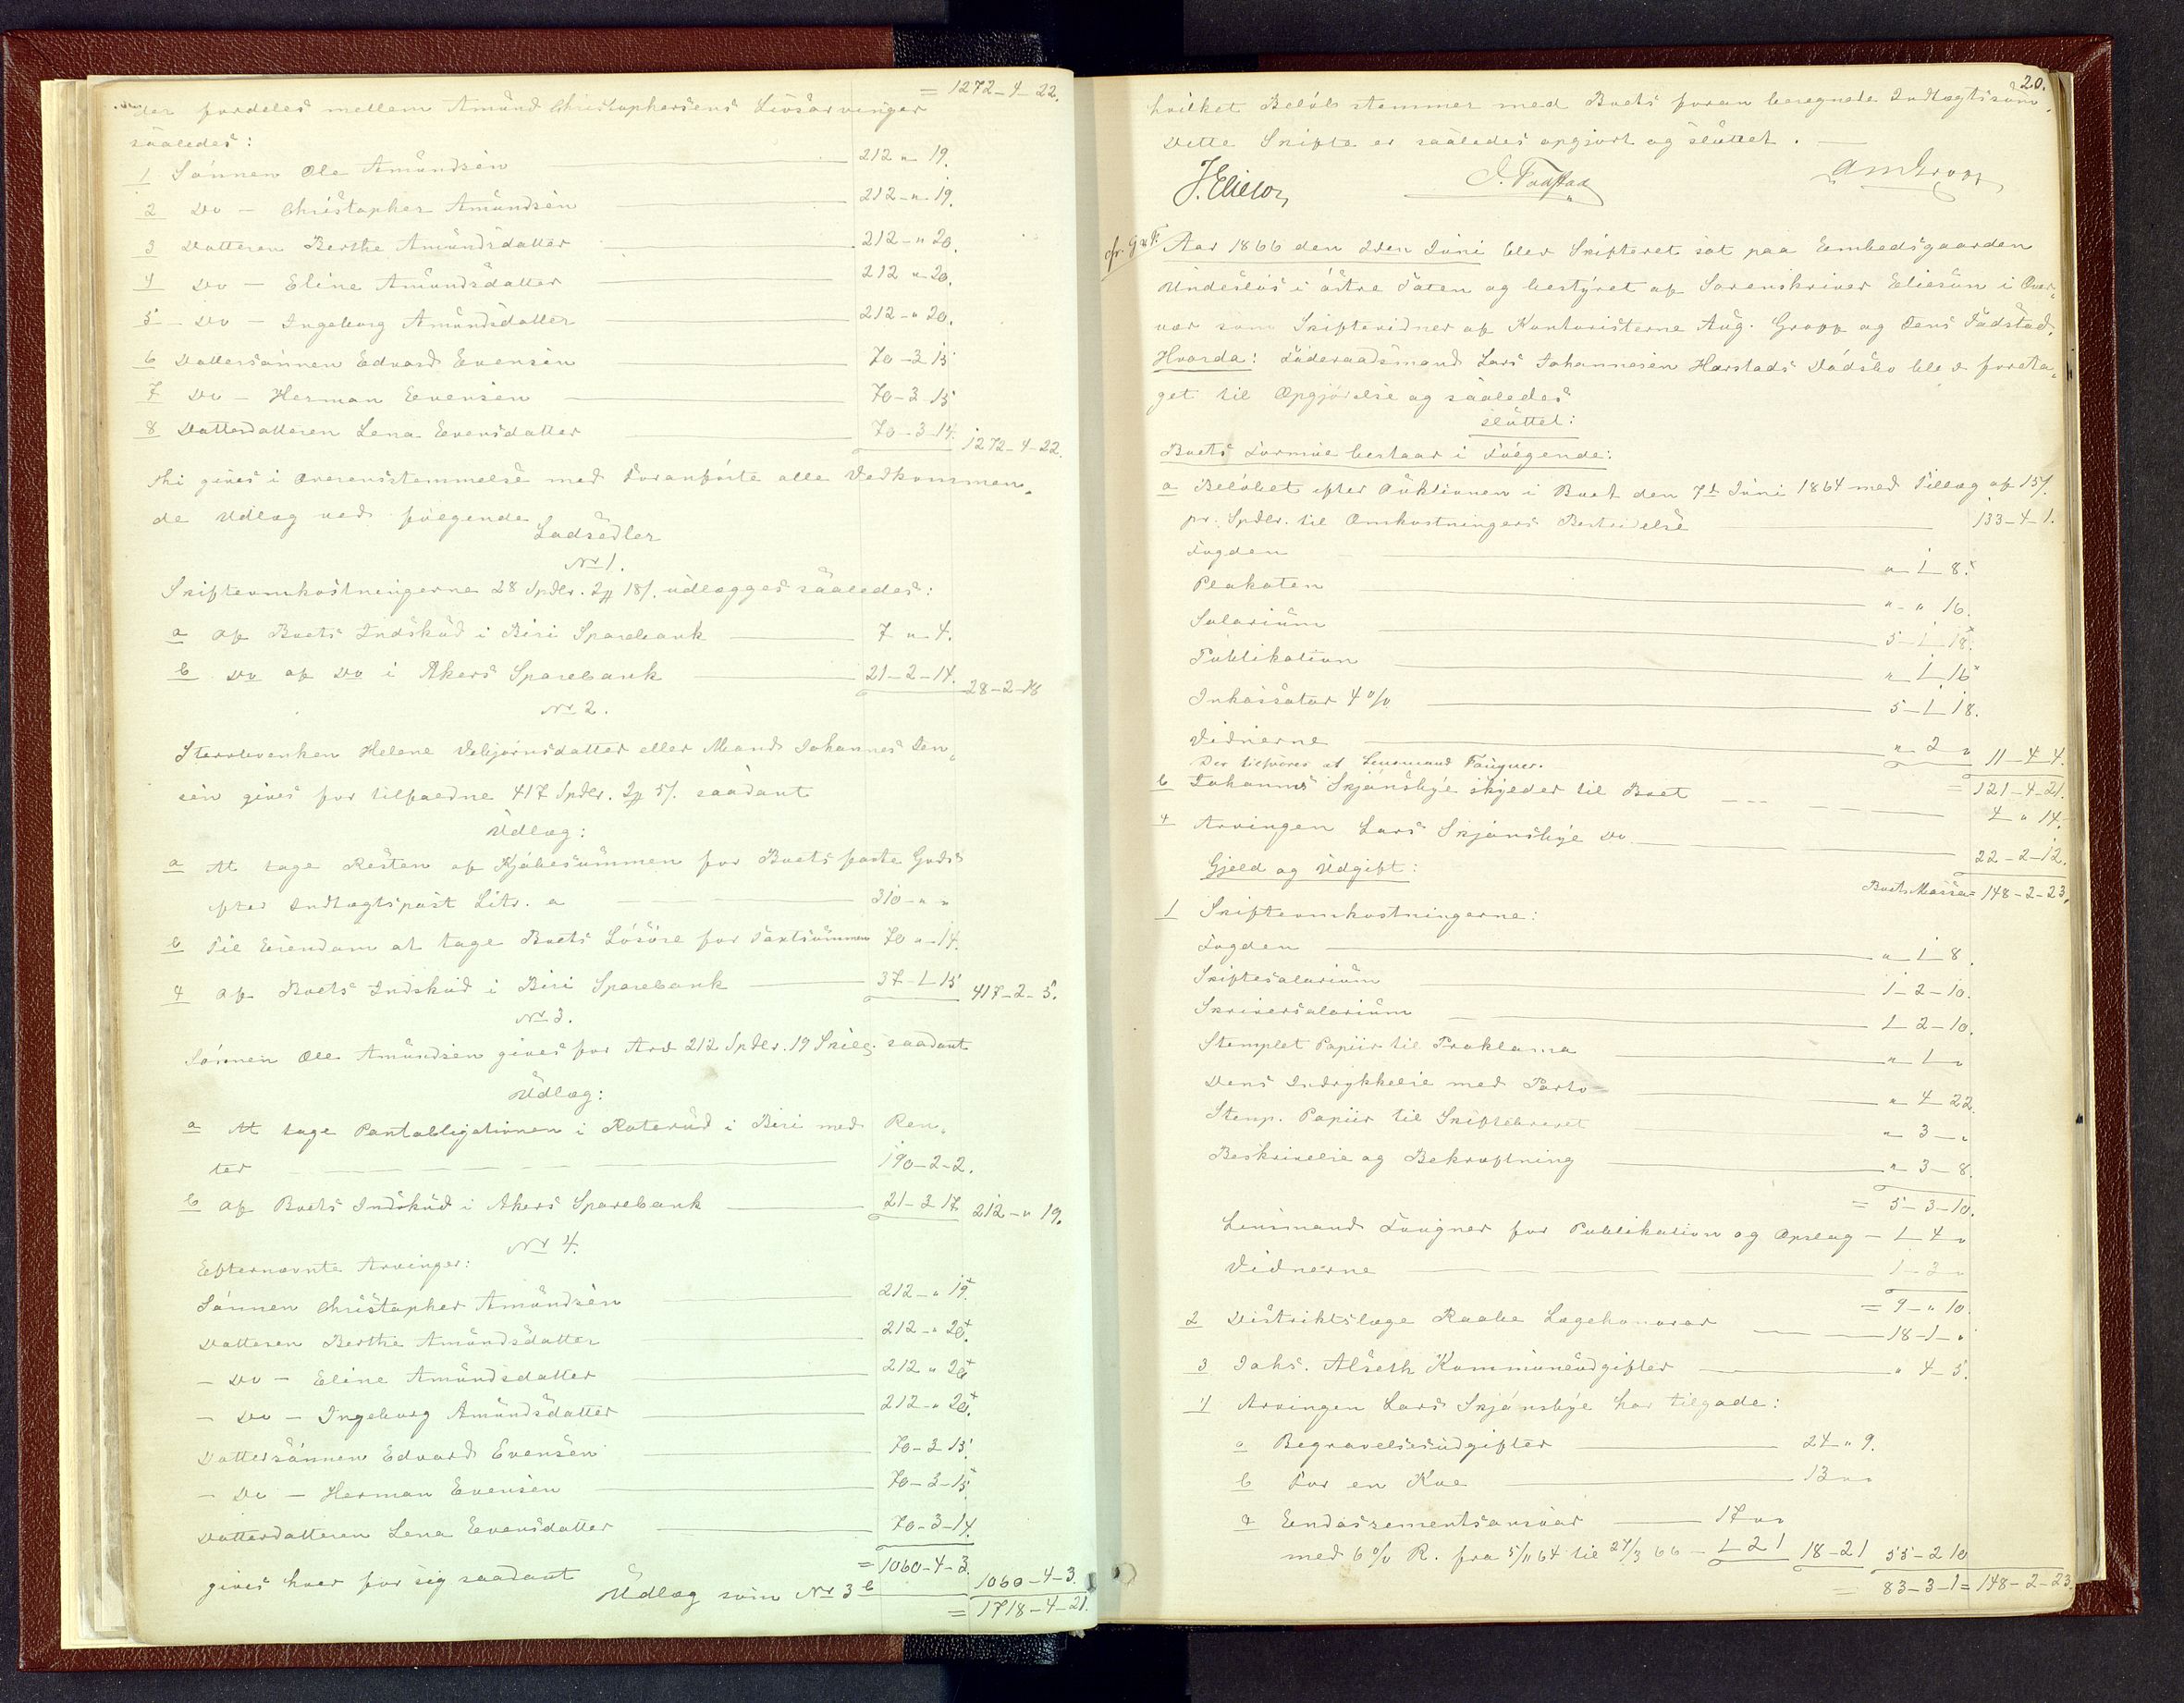 = 1272-4-22.
der fordeles mellem Amund Christophersens Livsarvinger
saaledes:
1 Sønnen Ole Amundsen 212 " 19.
2 Do - Christopher Amundsen 212 - " 19.
3 Datteren Berthe Amundsdatter 212 - " 20.
4 Do - Eline Amundsdatter 212 " 20.
5 - Do - Ingeborg Amundsdatter 212 - " 20.
6 Dattersønnen Edvard Evensen 70 - 3 15
7 Do - Herman Evensen 70 - 3 - 15
8 Datterdatteren Lena Evensdatter 70 - 3 - 14. 1272-4-22.
Thi gives i Overensstemmelse med Foranførte alle Vedkommen-
de Udlæg ved følgende
Lodsedler
No 1.
Skifteomkostningerne 28 Spdlr. 2 18 udlægges saaledes:
a af Boets Indskud i Biri Sparebank 7 " 4.
b Do af Do i Akers Sparebank 21-2-14. 28-2-18
No 2.
Stervbenken Helene Vebjørnsdatter eller Mand Johannes Jen-
sen gives for tilfaldne 417 Spdlr. 2 5 saadant
Udlæg:
a At tage Resten af Kjøbesummen for Boets faste Gods
efter Indtægtspost Litr. a 310 " "
b Til Eiendom at tage Boets Løsøre for Taxtsummen 70 " 14.
c af Boets Indskud i Biri Sparebank 37-1-15 417-2-5.
No 3.
Sønnen Ole Amundsen gives for Arv 212 Spdlr. 19 Skill. saadant
Udlæg:
a At tage Pantobligationen i Roterud i Biri med Ren-
ter 190-2-2.
b af Boets Indskud i Akers Sparebank 21-3 17 212 - " 19.
No 4.
Efternævnte Arvinger:
Sønnen Christopher Amundsen 212 - " 19.
Datteren Berthe Amundsdatter 212 - " 20.
- Do - Eline Amundsdatter 212 " 20
- Do - Ingeborg Amundsdatter 212 - " 20.
Dattersønnen Edvard Evensen 70 - 3 15
- Do - Herman Evensen 70 - 3 - 15
Datterdatteren Lena Evensdatter 70 - 3 - 14.
= 1060-4-3.
gives hver for sig saadant
Udlæg som No 3 b 1060-4-3.
= 1718-4-21.
20.
hvilket Beløb stemmer med Boets foran beregnede Indtægtssum.
Dette Skifte er saaledes opgjort og sluttet.
J. Elieson J. Fodstad Aug Gropp
Aar 1866 den 2den Juni blev Skifteret sat paa Embedsgaarden
Undesløs i østre Toten og bestyret af Sorenskriver Elieson i Over-
vær som Skiftevidner af Kontoristerne Aug. Gropp og Jens Fodstad.
Hvorda: Føderaadsmand Lars Johannesen Harstads Dødsbo blev foreta-
get til Opgjørelse og saaledes
sluttet:
Boets Formue bestaar i Følgende:
a Beløbet efter Auktionen i Boet den 7de Juni 1864 med Tillæg af 15
pr. Spdlr. til Omkostningers Bestridelse 133-4-1.
Fogden " 1 8.
Plakaten " - " 16.
Salarium 5-1-18.
Publikation " 1 16
Inkassator 4 % 5-1-18.
Vidnerne " 2 " 11-4-4.
= 121-4-21.
Der tilsvares af Lensmand Faugner.
b Johannes Skjønsbye skylder til Boet 4 " 14.
c Arvingen Lars Skjønsbye Do 22-2-12.
Boets Masse = 148-2-23.
Gjeld og Udgift:
1 Skifteomkostningerne:
Fogden " 1-8.
Skiftesalarium 1-2-10.
Skriversalarium 1-2-10.
Stemplet Papiir til Proklama " 1 "
Dens Indrykkelse med Porto " 4 22.
Stemp. Papiir til Skiftebrevet " 3 - "
Beskrivelse og Bekræftning " 3-8.
= 5-3-10.
Lensmand Faugner for Publikation og Opslag - 1-4 "
Vidnerne 1-3 "
= 9-"10.
2 Distriktslæge Raabe Lægehonorar 18-1-"
3 Johs. Alseth Kommuneudgifter " 4-5.
4 Arvingen Lars Skjønsbye har tilgode:
a Begravelsesudgifter 24 " 9.
b For en Koe 13 " "
c Endossementsansvar 17 " "
med 6 % R. fra 5/11 64 til 27/3 66 - 1 21 18-21 55-2 10
= 83-3-1 = 148-2-23.